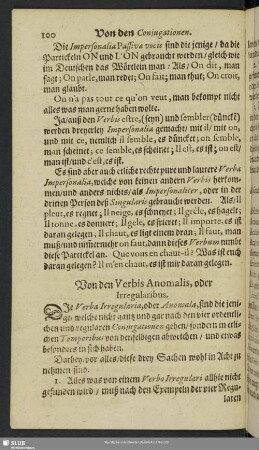 100 Von den Conjugationen.
Die Impersonalia Passiva vocis sind die jenige / da die
Partickeln ON und L'ON gebraucht werden / gleich wie
im Deutschen das Wörtlein man: Als / On dit, man
sagt; On parle, man redet; On fait; man thut; On croit,
man glaubt.
On n'a pas tout ce qu'on veut, man bekompt nicht
alles was man gerne haben wolte.
Ja / auß den Verbis estre, (seyn) und sembler (dünckē)
werden dreyerley Impersonalia gemacht / mit il / mit on,
und mit ce, nemlich il semble, es düncket; on semble,
man scheinet; ce semble, es scheinet; Il est, es ist; on est /
man ist / und c'est, es ist.
Es sind aber auch etliche rechte pure und lautere Verba
Impersonalia, welche von keinen andern Verbis herkom-
men / und anders nichts / als Impersonaliter, oder in der
dritten Person deß Singularis gebraucht werden. Als / Il
pleut, es regnet; Il neige, es schneyet; Il grêle, es hagelt;
Il tonne, es donnert; Il gele, es frieret; Il importe, es ist
daran gelegen; Il chaut, es ligt einem dran; Il faut, man
muß / und nimmermehr on faut, dann dieses Verbum nimbt
diese Partickel an. Que vous en chaut-il? Was ist euch
daran gelegen? Il m'en chaut, es ist mir daran gelegen.
Von den Verbis Anomalis, oder
Irregularibus.
DIe Verba Irregularia, oder Anomala, sind die jeni-
ge / welche nicht gantz und gar nach den vier ordent-
lichen und regularen Conjugationen gehen / sondern in etli-
chen Temporibus von denselbigen abweichen / und etwas
besonders in sich haben.
Darbey vor alles / diese drey Sachen wohl in Acht zu
nehmen sind.
1. Alles was von einem Verbo Irregulari allhie nicht
gefunden wird / muß nach den Exempeln der vier Regu-
laren
SLUB